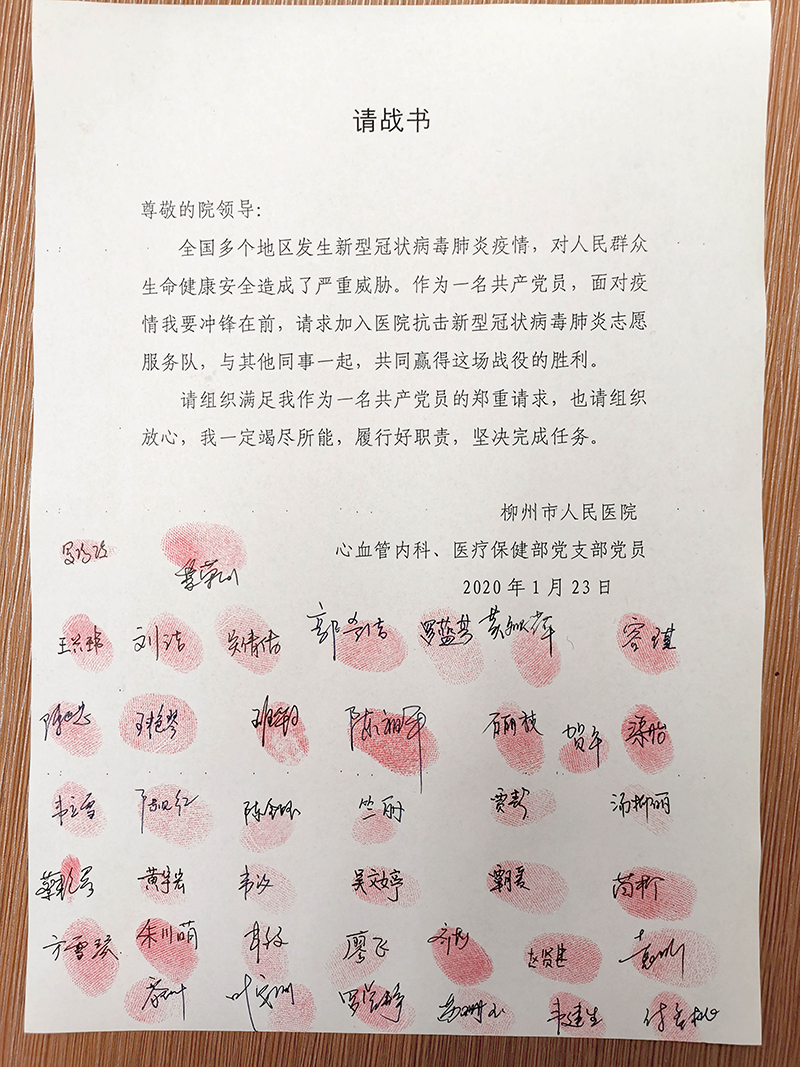 请战书
尊敬的院领导:
全国多个地区发生新型冠状病毒肺炎疫情，对人民群众
生命健康安全造成了严重威胁。作为一名共产党员，面对疫
情我要冲锋在前，请求加入医院抗击新型冠状病毒肺炎志愿
服务队，与其他同事一起，共同赢得这场战役的胜利。
请组织满足我作为一名共产党员的郑重请求，也请组织
放心，我一定竭尽所能，履行好职责，坚决完成任务。
柳州市人民医院
心血管内科、医疗保健部党支部党员
2020年1月23日
刘洁 吴倩倩 罗蓝其 容琪
王艳琴 石丽枝 贺午
韦立雪 竺丽 贾彭 汤柳丽
黄宇宏 韦汐 吴文婷 覃夏
方雪琼 朱川萌 廖飞 赵贤进
韦建生